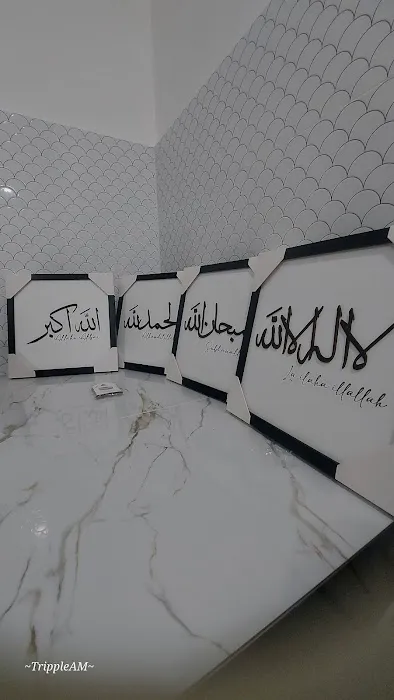 الله أكبر
Allahu Akbar
الحمد لله
Alhamdulillah
سبحان الله
Subhanallah
لا إله إلا الله
La ilaha illallah
~TrippleAM~